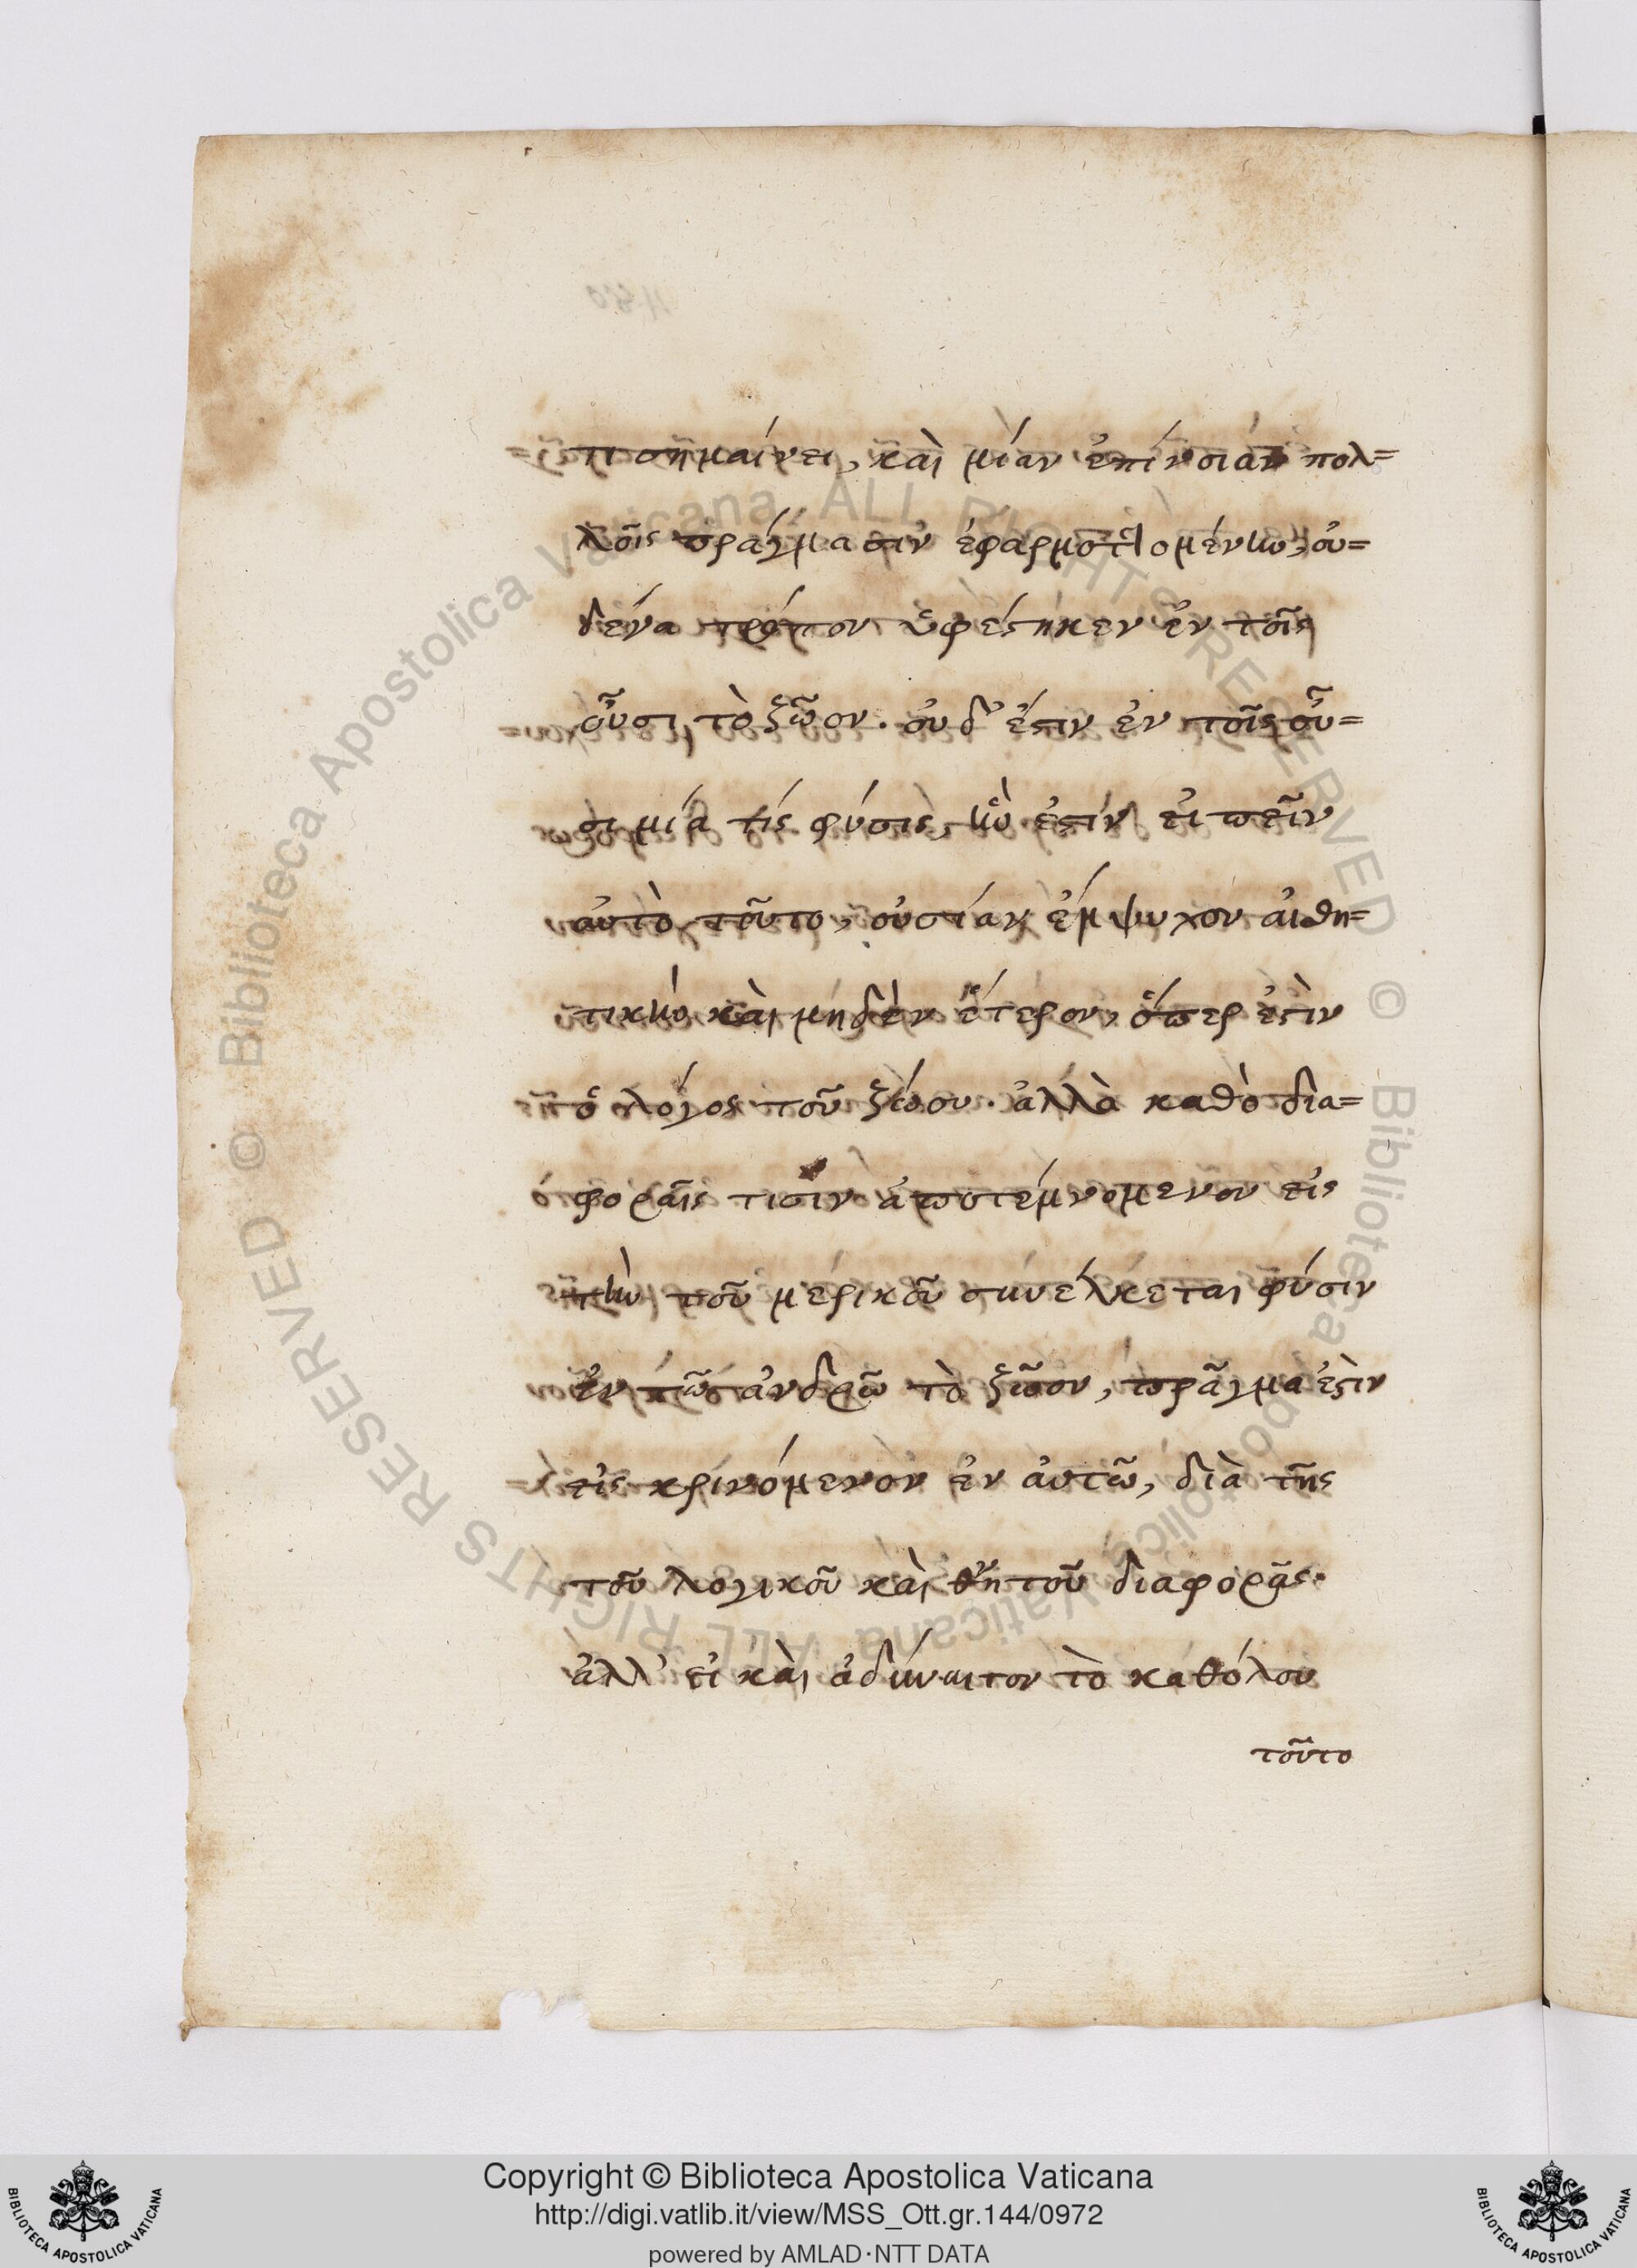 τι σημαίνει, καὶ μίαν ἐπίνοιαν πολ=
λοῖς πράγμασιν ἐφαρμοττομένην, οὐ=
δένα τρόπον ὑφέστηκεν ἐν τοῖς
οὖσι τὸ ζῶον. οὐδ' ἔστιν ἐν τοῖς οὖ=
σι μία τίς φύσις, ἣν ἐστίν εἰπεῖν
αὐτὸ τοῦτο, οὐσίαν ἔμψυχον αἰσθη=
τικὴν καὶ μηδὲν ἕτερον, ὅπερ ἐστὶν
ὁ λόγος τοῦ ζώου. ἀλλὰ καθὸ δια=
φοραῖς τισὶν ἀποτέμνομενον εἰς
τὴν τοῦ μερικοῦ συνέλκεται φύσιν
ἐν τῶ ἀνδρῶ τὸ ζῶον, πρᾶγμα ἐστὶν
εἰς κρινόμενον ἐν αὐτῶ, διὰ τῆς
τοῦ λογικοῦ καὶ θνητοῦ διαφορᾶς.
ἀλλ' εἰ καὶ ἀδύνατον τὸ καθόλου
τοῦτο
Copyright © Biblioteca Apostolica Vaticana
http://digi.vatlib.it/view/MSS_Ott.gr.144/0972
powered by AMLAD·NTT DATA
BIBLIOTECA APOSTOLICA VATICANA
BIBLIOTECA APOSTOLICA VATICANA